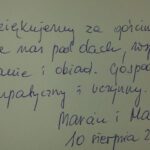 ziękujemy za gościn
nas pod dach,
anie i obiad. Gospod
mpatyczny i uczynny.
Marcin i Ma
10 sierpnia 2